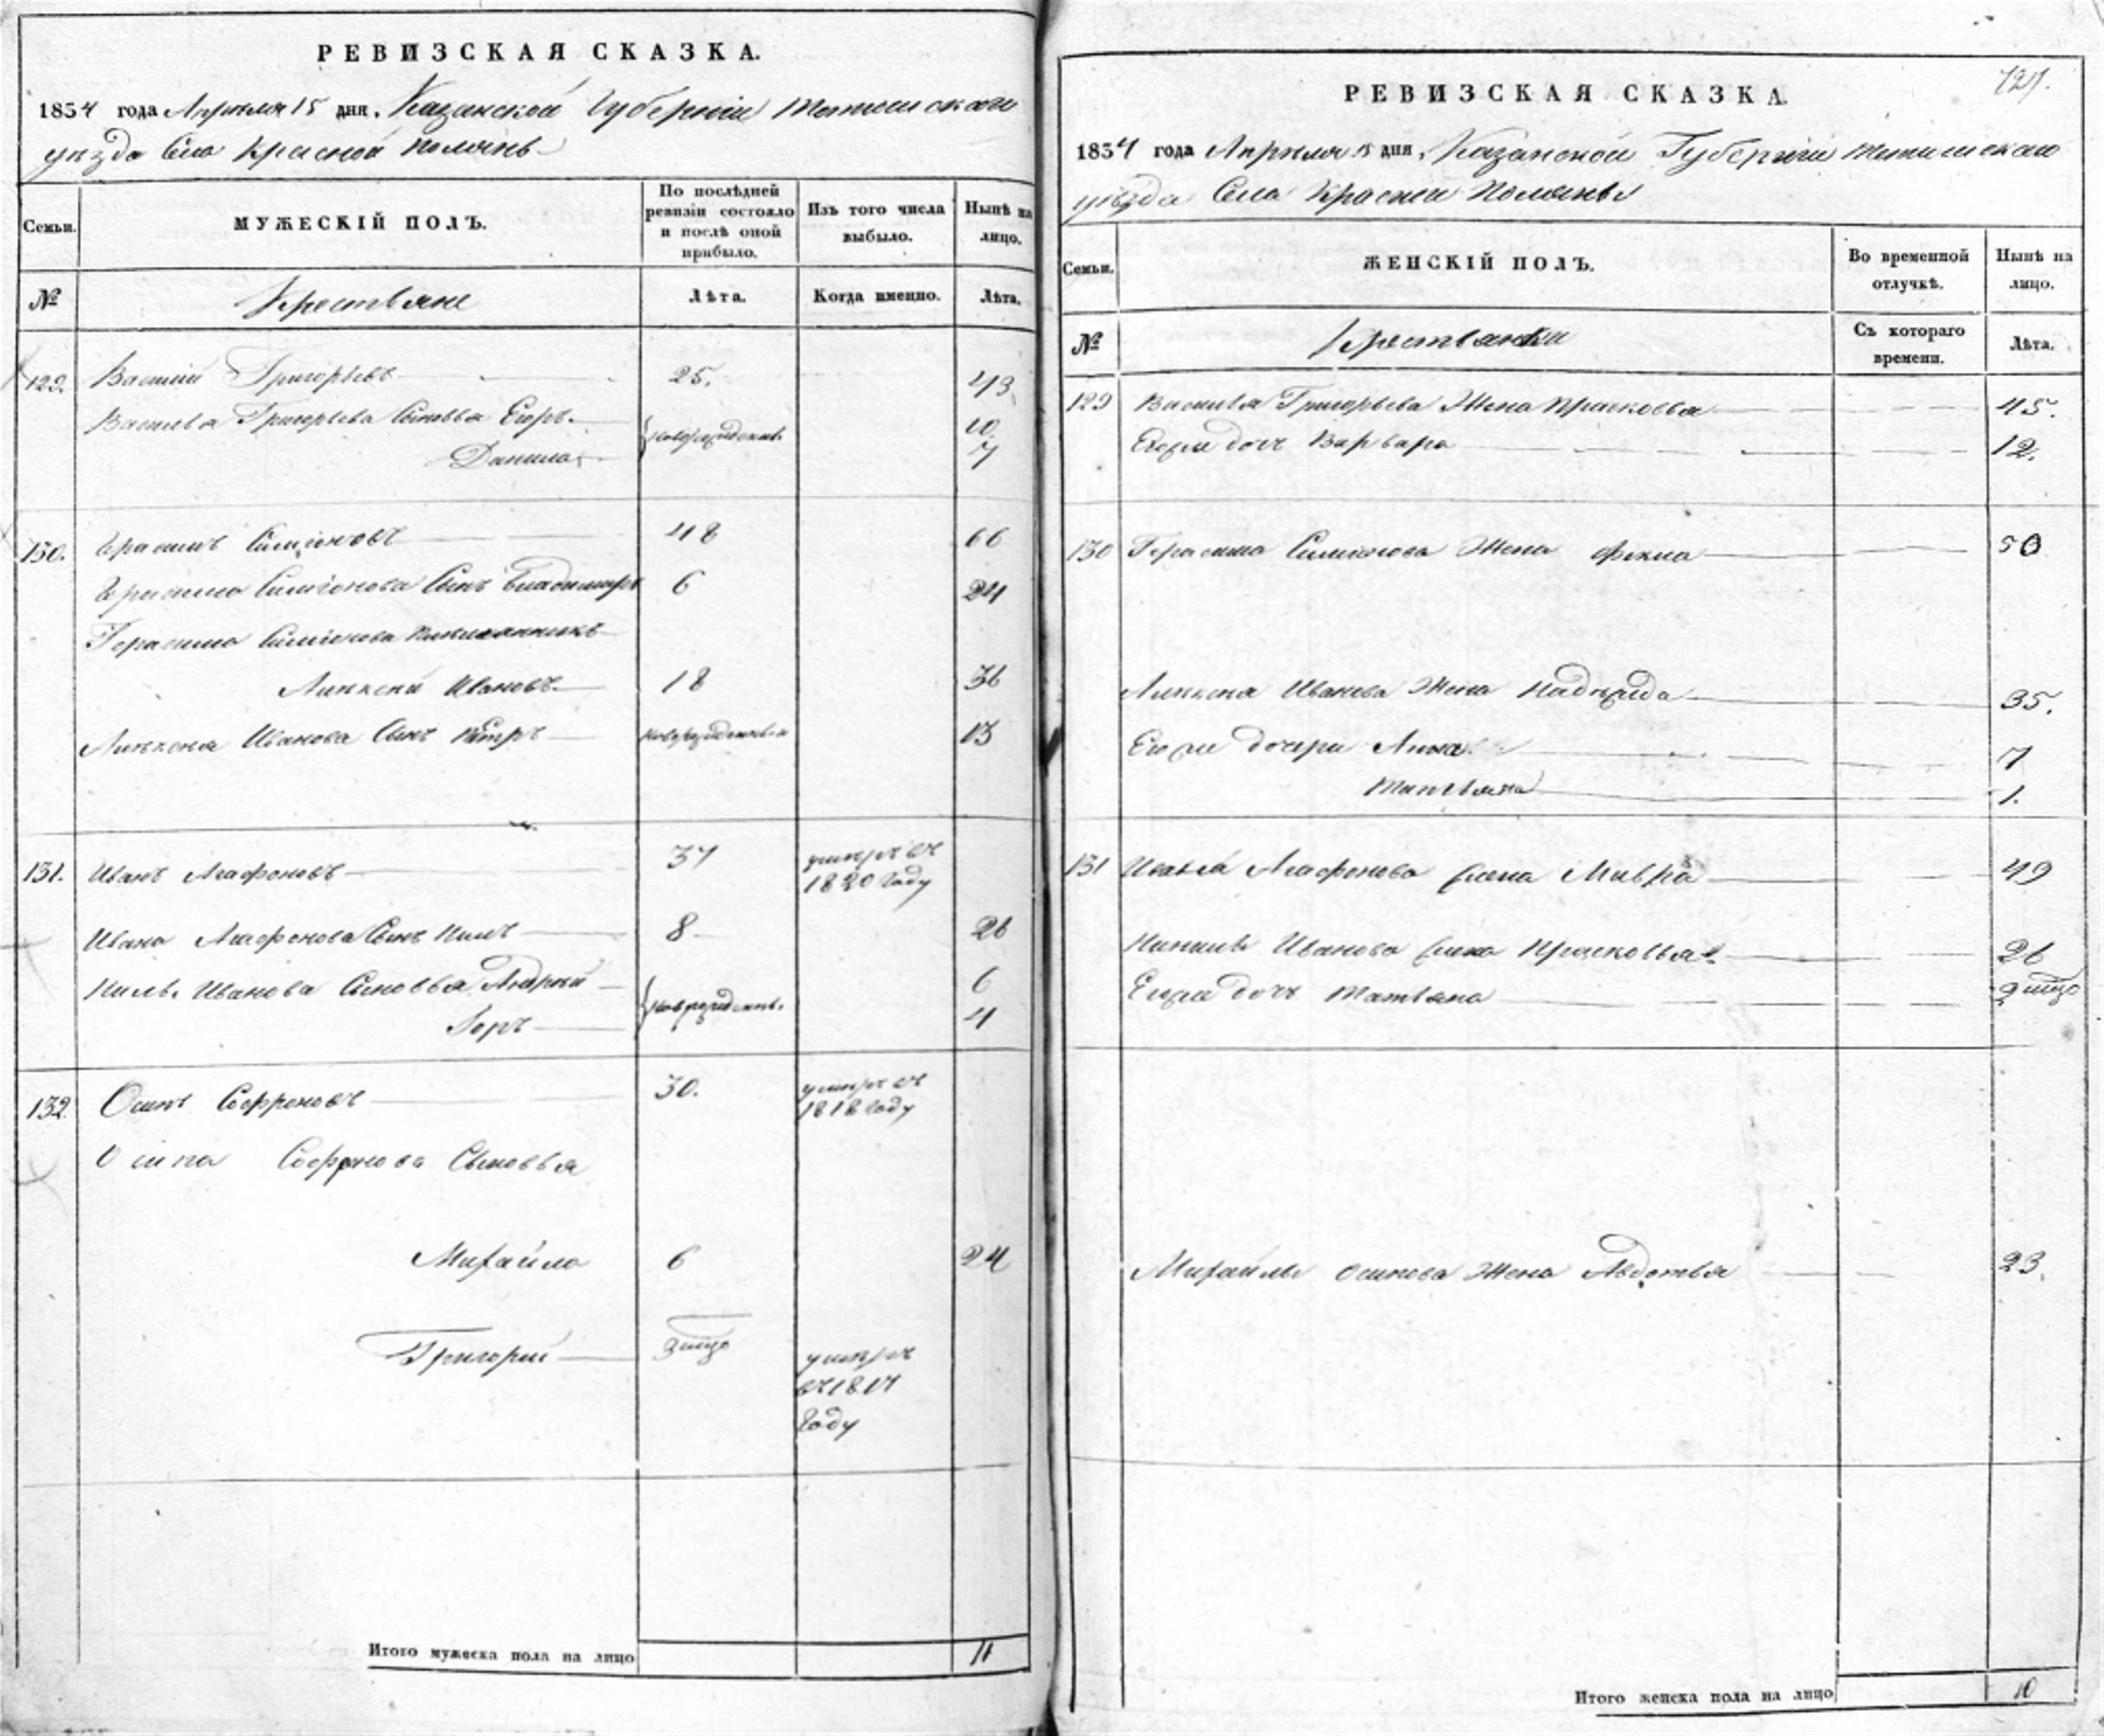 РЕВИЗСКАЯ СКАЗКА.
1834 года Апреля 15 дня. Казанской Губернии Тетюшскаго
уезда Села Красной поляны
Семьи.
МУЖЕСКІЙ ПОЛЪ.
По послѣдней ревизіи состояло и послѣ оной прибыло.
Изъ того числа выбыло.
Нынѣ на лицо.
№
Крестьяне
Лѣта.
Когда имянно.
Лѣта.
129. Василий Григорьевъ 25. 43
Василья Григорьева Сыновья Егоръ новорожденные 10.
Данила 7
130. Герасимъ Симионовъ 48 66
Герасима Симионова Сынъ Владимиръ 6 24
Герасима Симионова племянникъ
Алексей Ивановъ 18 36
Алексея Иванова Сынъ Петръ новорожденный 13
131. Иванъ Агафоновъ 37 умеръ въ
1820 году
Ивана Агафонова Сынъ Нилъ 8 26
Нила Иванова Сыновья Андрей новорожденные 6
4
132. Осипъ Софроновъ 30. умеръ въ
1818 году
Осипа Софронова Сыновья
Михайло 6 24
Григорий умеръ
въ 1817
году
Итого мужеска пола на лицо 11
121.
РЕВИЗСКАЯ СКАЗКА.
1834 года Апреля 15 дня. Казанской Губернии Тетюшскаго
уезда Села Красной поляны
Семьи.
ЖЕНСКІЙ ПОЛЪ.
Во временной отлучкѣ.
Нынѣ на лицо.
№
Крестьянки
Съ котораго времени.
Лѣта.
129 Василья Григорьева Жена Прасковья 45.
Его же дочь Варвара 12.
130 Герасима Симионова Жена Фекла 50
Алексея Иванова Жена Надежда 35.
Его же дочери Анна 7
Татьяна 1.
131 Ивана Агафонова жена Мавра 49
Иванова жена Прасковья 26
Его же дочь Татьяна
Михайлы Осипова Жена Авдотья 23.
Итого женска пола на лицо 10